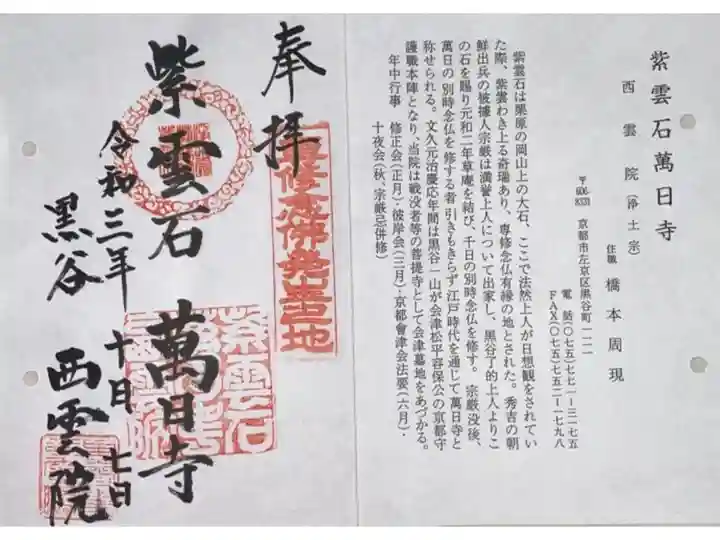 紫雲石萬日寺
西雲院(浄土宗)
住職 橋本周現
〒606-8331 京都市左京区黒谷町一二一
電話(〇七五)七七一-三一七五
FAX(〇七五)七五二-一七九八
紫雲石は栗原の岡山上の大石、ここで法然上人が日想観をされてい
た際、紫雲わき上る奇瑞あり、専修念仏有縁の地とされた。秀吉の朝
鮮出兵の被擄人宗厳は満誉上人について出家し、黒谷了的上人よりこ
の石を賜り元和二年草庵を結び、千日の別時念仏を修す。宗厳没後、
萬日の別時念仏を修する者引きもきらず江戸時代を通じて萬日寺と
称せられる。文久元治慶応年間は黒谷一山が会津松平容保公の京都守
護職本陣となり、当院は戦没者等の菩提寺として会津墓地をあづかる。
年中行事 修正会(正月)・彼岸会(三月)・京都會津会法要(六月)・
十夜会(秋、宗厳忌併修)
奉拝
専修念佛発祥地
紫雲石 萬日寺
令和三年 十月 七日
黒谷 西雲院